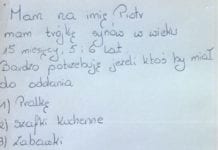 Mam na imię Piotr
mam trójkę synów w wieku
15 miesięcy, 5 i 6 lat.
Bardzo potrzebuję jeżeli ktoś by miał
do oddania
1) Pralkę
2) Szafki kuchenne
3) Zabawki